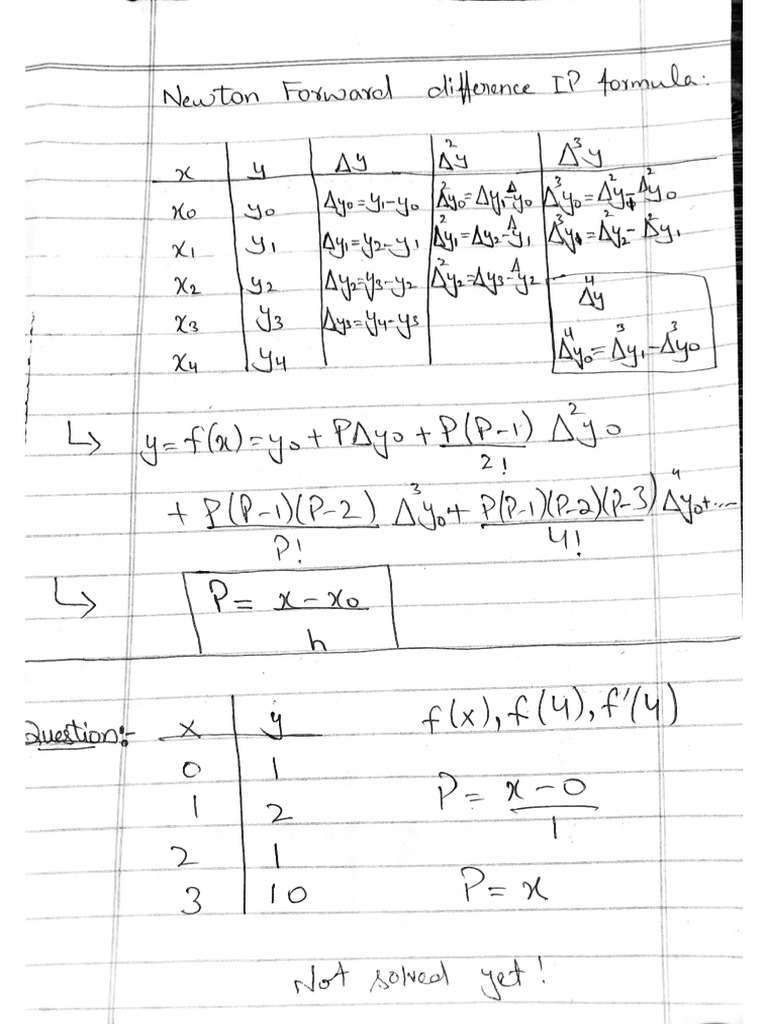 Newton Forward difference IP formula:
x y Δy Δ²y Δ³y
x0 y0 Δy0=y1-y0 Δ²y0=Δy1-Δy0 Δ³y0=Δ²y1-Δ²y0
x1 y1 Δy1=y2-y1 Δ²y1=Δy2-Δy1 Δ³y1=Δ²y2-Δ²y1
x2 y2 Δy2=y3-y2 Δ²y2=Δy3-Δy2
x3 y3 Δy3=y4-y3
x4 y4
Δ⁴y
Δ⁴y0=Δ³y1-Δ³y0
↳ y=f(x)=y0+PΔy0+P(P-1)/2! Δ²y0
+P(P-1)(P-2)/P! Δ³y0+P(P-1)(P-2)(P-3)/4! Δ⁴y0+....
↳ P=x-x0/h
Question:- x y f(x), f(4), f'(4)
0 1
1 2 P=x-0/1
2 1
3 10 P=x
Not solved yet!